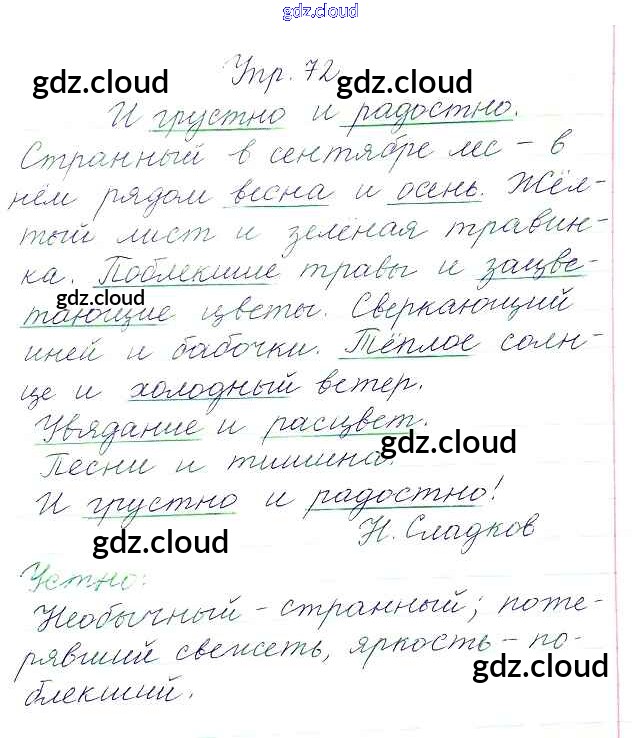 gdz.cloud
gdz.cloud Упр. 72 gdz.cloud
И грустно и радостно.
Странный в сентябре лес - в
нём рядом весна и осень. Жёл-
тый лист и зелёная травин-
ка. Поблекшие травы и зацве-
gdz.cloud
тающие цветы. Сверкающий
иней и бабочки. Тёплое солн-
це и холодный ветер.
Увядание и расцвет.
gdz.cloud
Песни и тишина.
И грустно и радостно!
gdz.cloud Н. Сладков
Устно:
Необычный - странный; поте-
рявший свежесть, яркость - по-
gdz.cloud
блекший.